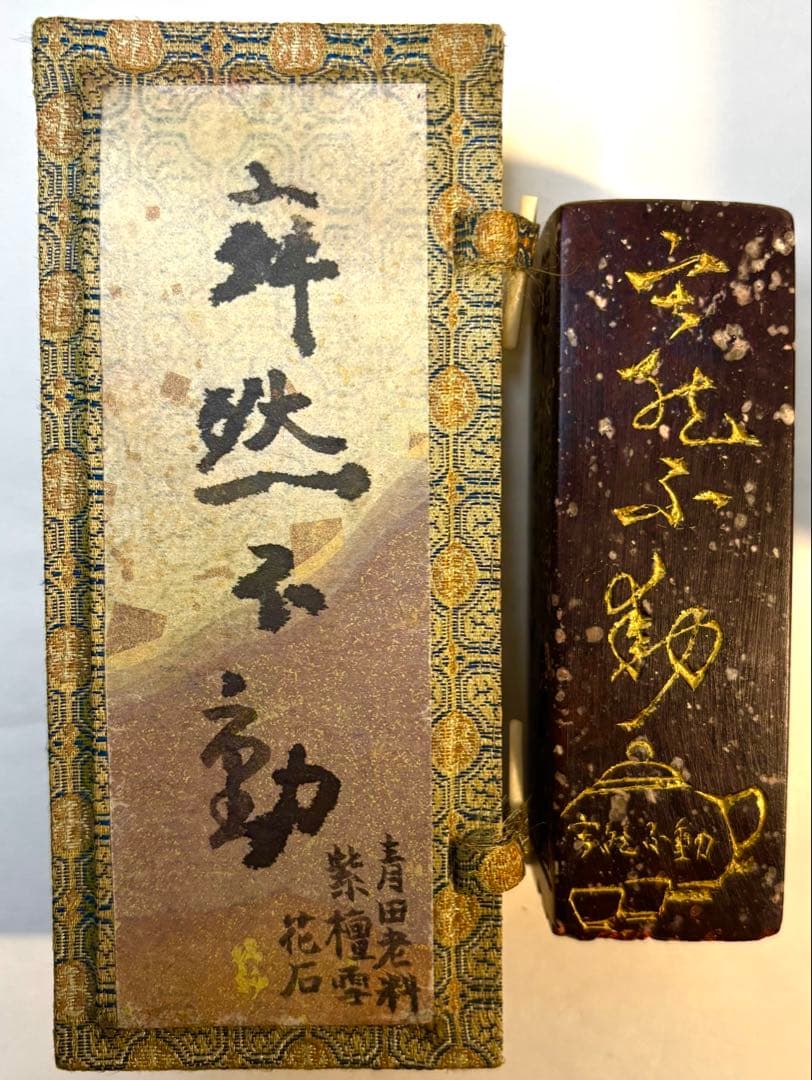 寂然不動
青田老料
紫檀雪
花石
寂然不動
寂然不動